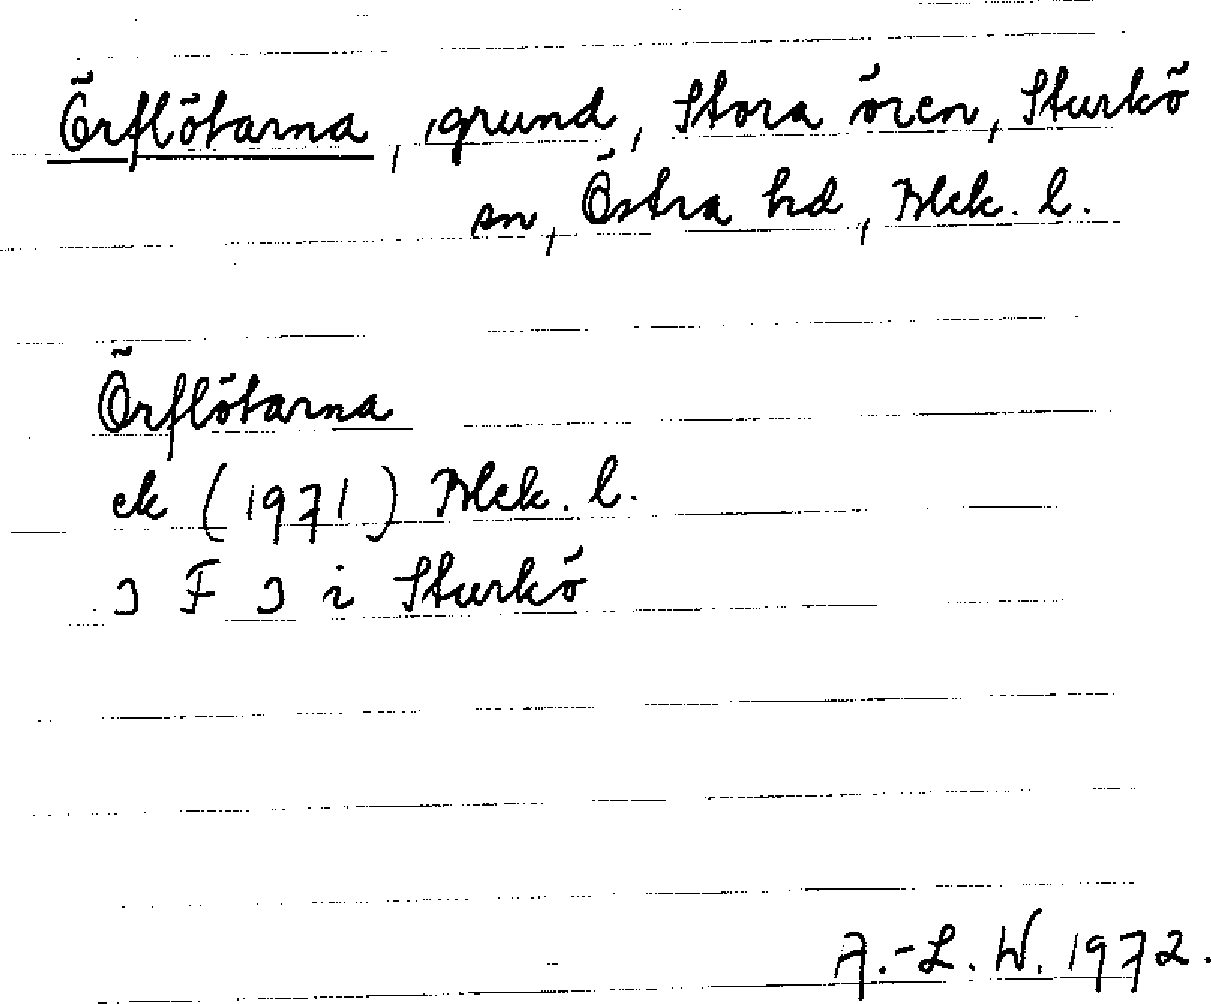 Örflötarna, grund, Stora ören, Sturkö
sn, Östra hd, Blek. l.
Örflötarna
ek (1971) Blek. l.
3 F 3 i Sturkö
A.-L. W. 1972.